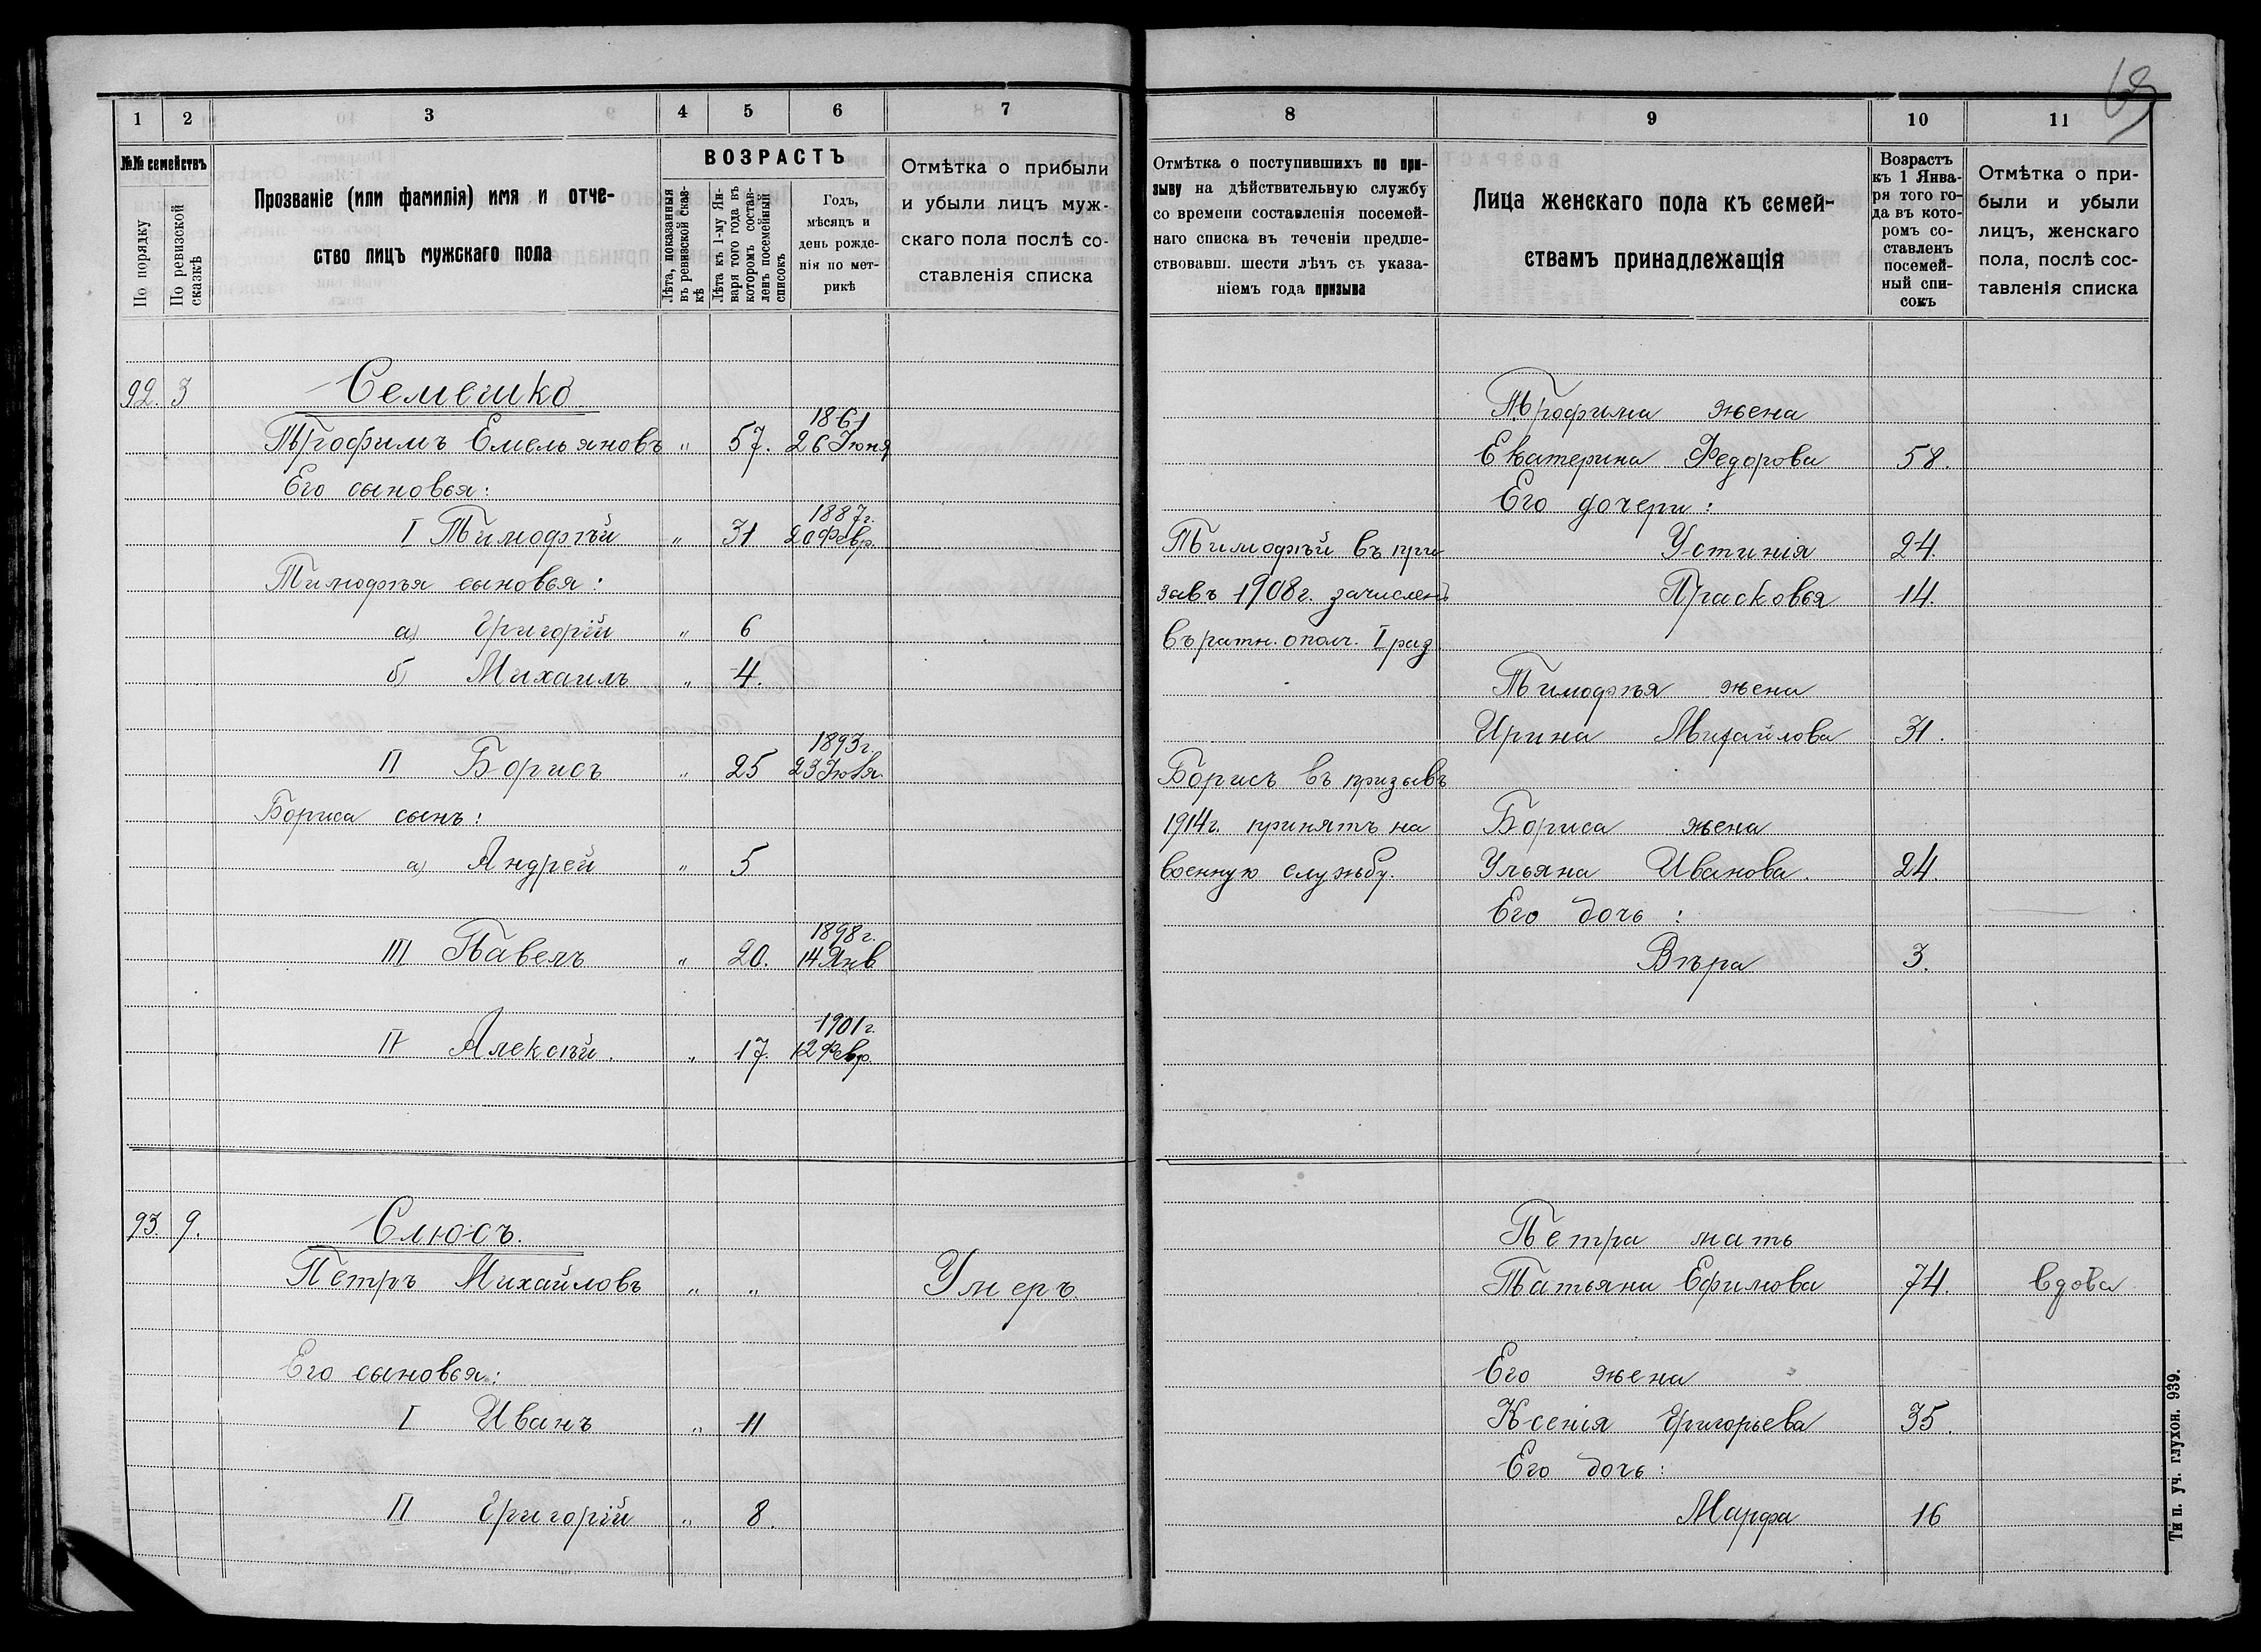 69
1 2 3 4 5 6 7
№№ семействъ
По порядку
По ревизской сказкѣ
Прозваніе (или фамилія) имя и отче-
ство лицъ мужскаго пола
ВОЗРАСТЪ
Лѣта, показанныя
въ ревизской сказ-
кѣ
Лѣта къ 1-му Ян-
варя того года въ
которомъ состав-
ленъ посемейный
списокъ
Годъ,
мѣсяцъ и
день рожде-
нія по мет-
рикѣ
Отмѣтка о прибыли
и убыли лицъ муж-
скаго пола послѣ со-
ставленія списка
92. 3 Семешко
1861
Трофимъ Емельяновъ „ 57. 26 Іюня
Его сыновья:
1887г.
I Тимофѣй „ 31 20 Февр.
Тимофѣя сыновья:
а) Григорій „ 6
б) Михаилъ „ 4.
1893г.
II Борисъ „ 25 23 Іюля.
Бориса сынъ:
а) Андрей „ 5
1898г.
III Павелъ „ 20. 14 Янв
1901г.
IV Алексѣй. „ 17. 12 Февр.
93. 9. Слюсъ.
Петръ Михайловъ „ „ Умеръ
Его сыновья:
I Иванъ „ 11
II Григорій „ 8.
8 9 10 11
Отмѣтка о поступившихъ по при-
зыву на дѣйствительную службу
со времени составленія посемей-
наго списка въ теченіи предше-
ствовавш. шести лѣтъ съ указа-
ніемъ года призыва
Лица женскаго пола къ семей-
ствамъ принадлежащія
Возрастъ
къ 1 Янва-
ря того го-
да въ кото-
ромъ со-
ставленъ
посемей-
ный спи-
сокъ
Отмѣтка о при-
были и убыли
лицъ, женскаго
пола, послѣ сос-
тавленія списка
Трофима жена
Екатерина Федорова 58.
Его дочери:
Тимофѣй въ при- Устинія 24.
завъ 1908г. зачисленъ Прасковья 14.
въ ратн. ополч. I раз
Тимофѣя жена
Ирина Михайлова 31.
Борисъ въ призывъ
1914г. принятъ на Бориса жена
военную службу. Ульяна Иванова. 24.
Его дочь:
Вѣра 3.
Петра мать
Татьяна Ефимова 74. вдова
Его жена
Ксенія Григорьева 35.
Его дочь:
Марфа 16
Тип. уч. глухон. 939.